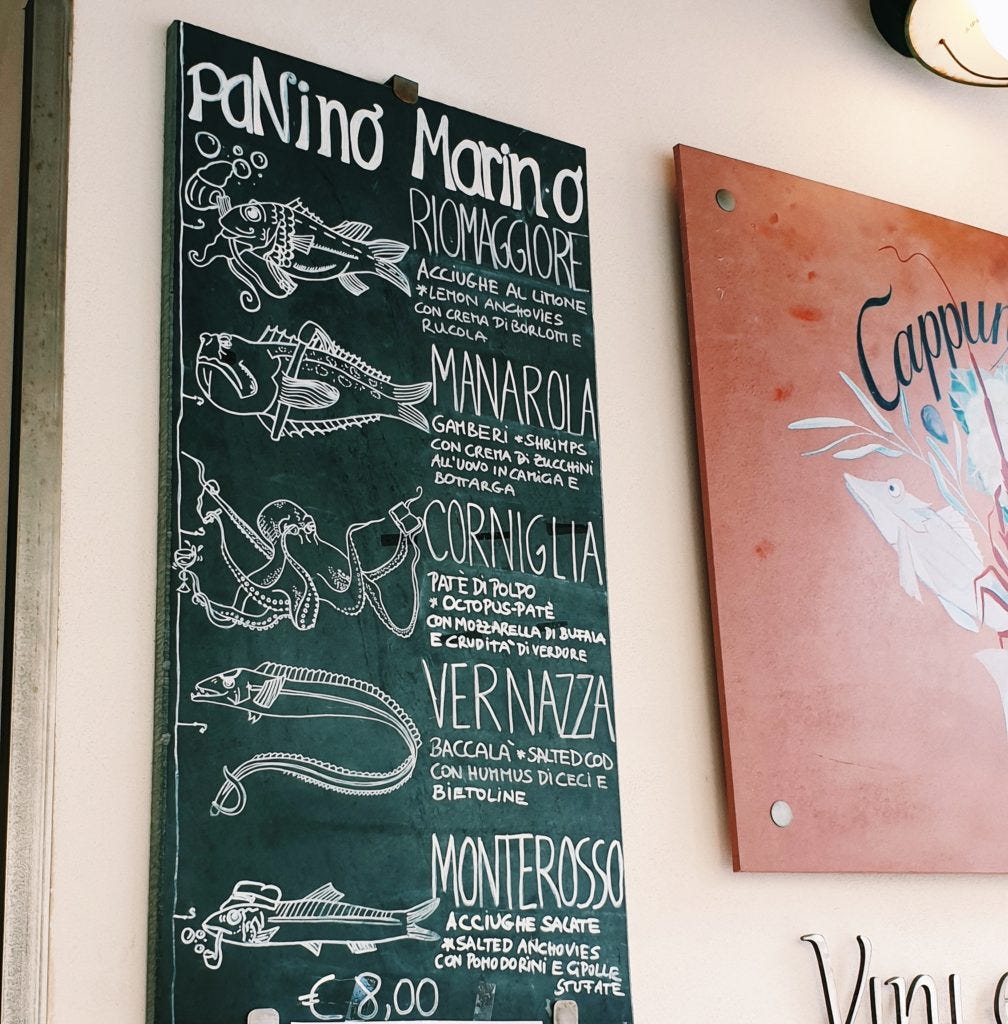 PaNino Marino
RIOMAGGIORE
ACCIUGHE AL LIMONE
*LEMON ANCHOVIES
CON CREMA DI BORLOTTI E
RUCOLA
MANAROLA
GAMBERI *SHRIMPS
CON CREMA DI ZUCCHINI
ALL'UOVO IN CAMICIA E
BOTTARGA
CORNIGLIA
PATÈ DI POLPO
* OCTOPUS-PATÈ
CON MOZZARELLA DI BUFALA
E CRUDITA' DI VERDORE
VERNAZZA
BACCALA' *SALTED COD
CON HUMMUS DI CECI E
BIETOLINE
MONTEROSSO
ACCIUGHE SALATE
*SALTED ANCHOVIES
CON POMODORINI E CIPOLLE
STUFATE
€ 8,00
Cappun
Vini